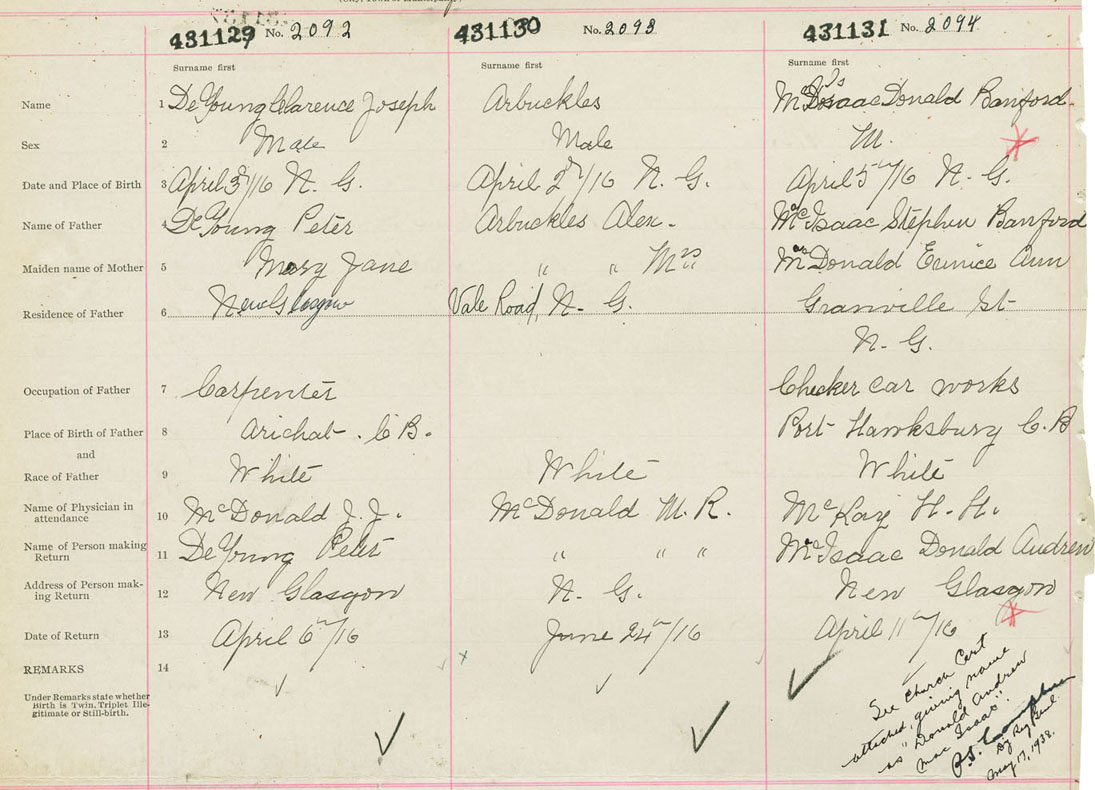 431129 No. 2092 431130 No. 2093 431131 No. 2094
Surname first Surname first Surname first
Name 1 De Young Clarence Joseph Arbuckles McIsaac Donald Banford
Sex 2 Male Male M.
Date and Place of Birth 3 April 3rd/16 N. G. April 2nd/16 N. G. April 5th/16 N. G.
Name of Father 4 De Young Peter Arbuckles Alex. MacIsaac Stephen Banford
Maiden name of Mother 5 Mary Jane " " Mrs MacDonald Eunice Ann
Residence of Father 6 New Glasgow Vale Road, N. G. Granville St
N. G.
Occupation of Father 7 Carpenter Checker car works
Place of Birth of Father 8 Arichat. C B. Port Hawksbury C. B
and
Race of Father 9 White White White
Name of Physician in
attendance 10 McDonald J. J. McDonald M. R. McKay H. H.
Name of Person making
Return 11 De Young Peter " " " MacIsaac Donald Andrew
Address of Person mak-
ing Return 12 New Glasgow N. G. New Glasgow
Date of Return 13 April 6th/16 June 24th/16 April 11th/16
REMARKS 14
Under Remarks state whether
Birth is Twin, Triplet Ille-
gitimate or Still-birth.
See Church Cert
attached, giving name
as "Donald Andrew
Mac Isaac".
May 17, 1938.